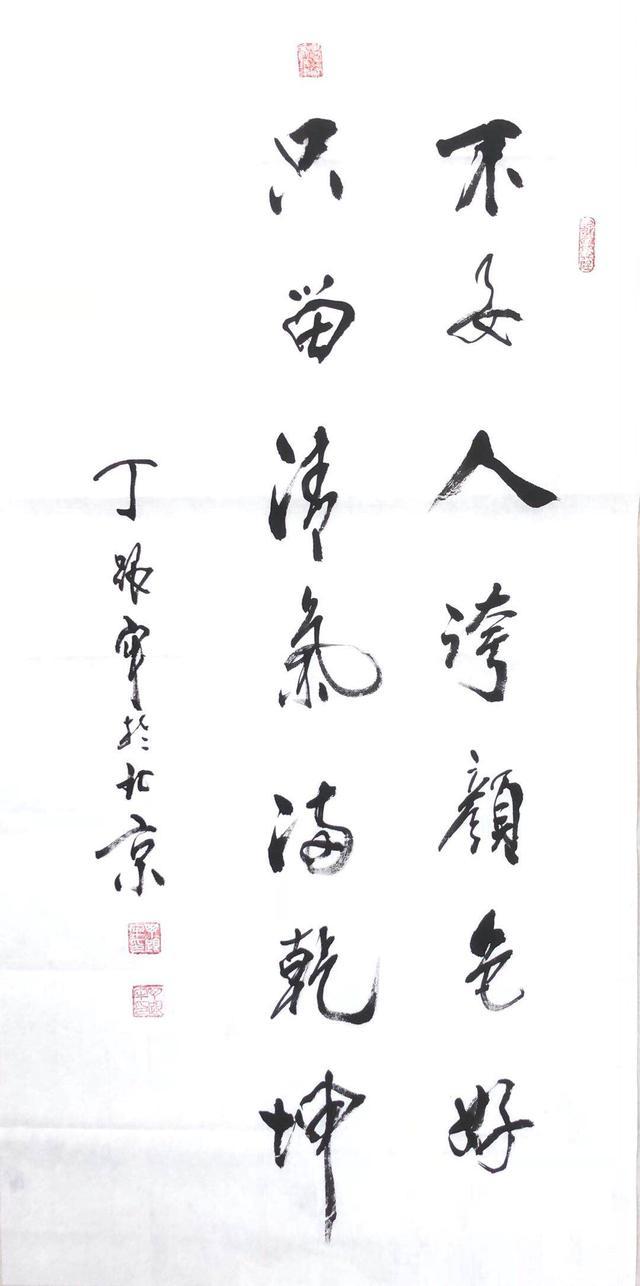 不要人誇顏色好
只留清氣滿乾坤
丁跟軍於北京